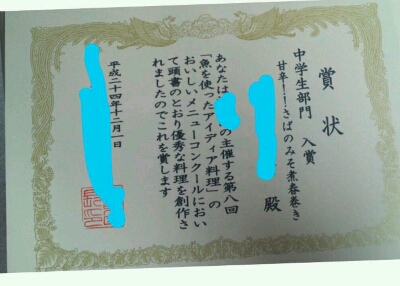 賞状
中学生部門 入賞
甘辛!!さばのみそ煮春巻き
殿
あなたは の主催する第八回
「魚を使ったアイディア料理」の
おいしいメニューコンクールにおい
て頭書のとおり優秀な料理を創作さ
れましたのでこれを賞します
平成二十四年十二月一日